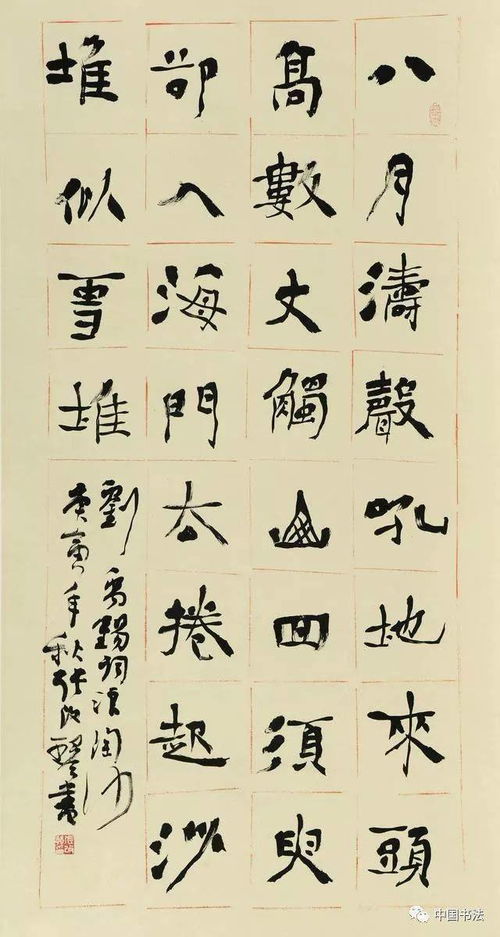 八月濤聲吼地來頭
高數丈觸山回須臾
卻入海門去捲起沙
堆似雪堆
劉禹錫詞浪淘沙
庚寅年秋張改琴書
中国书法